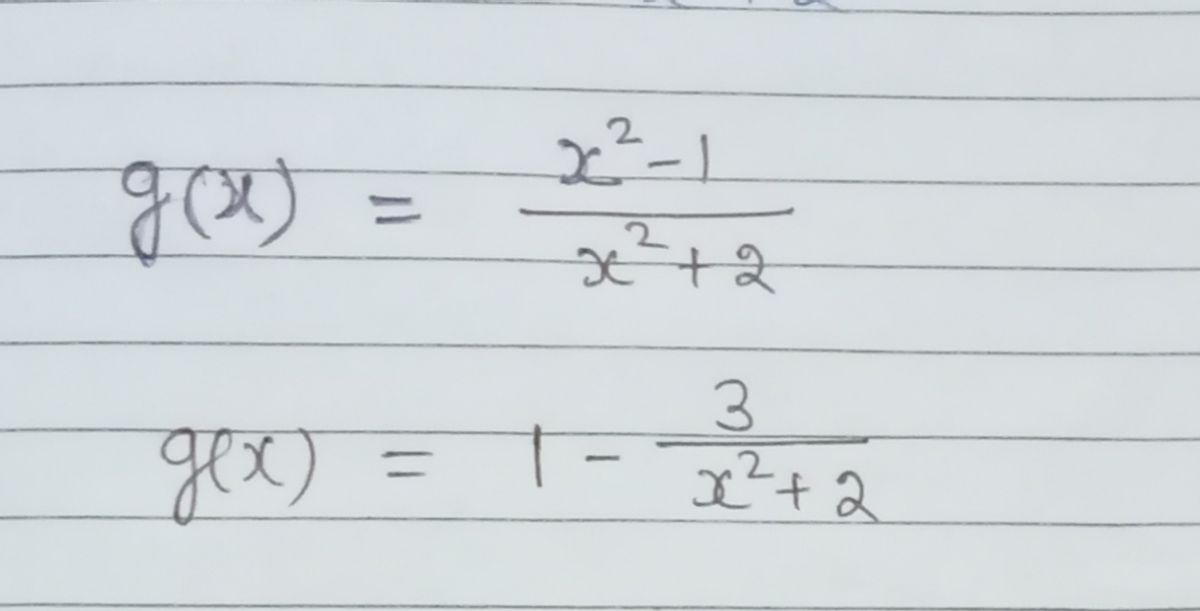 g(x) = \frac{x^2-1}{x^2+2}
g(x) = 1 - \frac{3}{x^2+2}